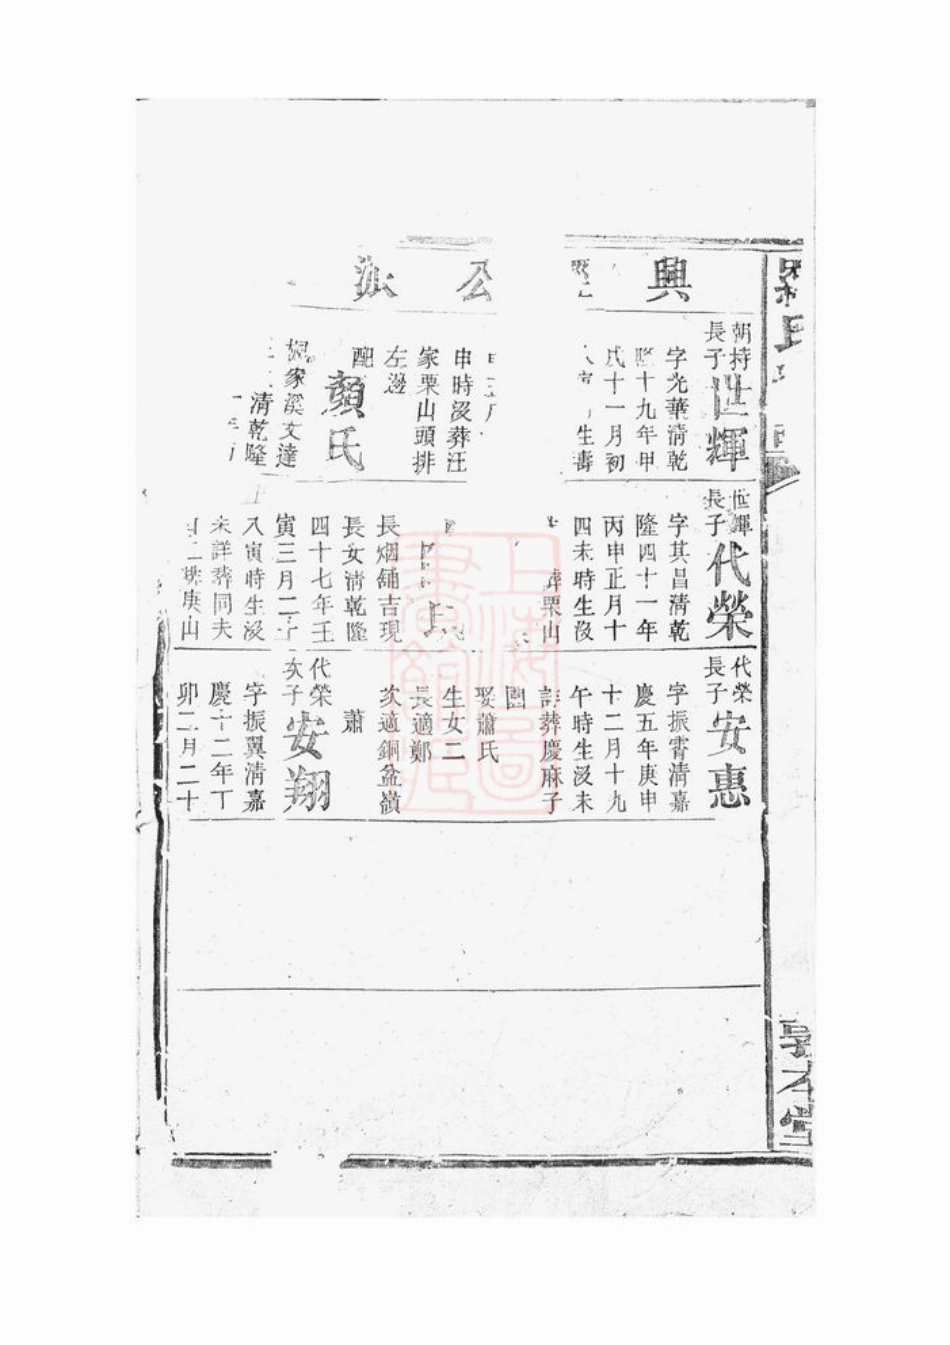 興
公派
朝持
長子
世輝
字光華清乾
隆十九年甲
戌十一月初
生壽
申時沒葬汪
家栗山頭排
左邊
配
顏氏
家溪文達
清乾隆
世輝
長子
代榮
字其昌清乾
隆四十一年
丙申正月十
四未時生沒
葬栗山
氏
長烟舖吉現
長女清乾隆
四十七年壬
寅三月二十
八寅時生沒
未詳葬同夫
庚山
代榮
長子
安惠
字振霄清嘉
慶五年庚申
十二月十九
午時生沒未
詳葬慶麻子
園
娶蕭氏
生女二
長適鄭
次適銅盆嶺
蕭
代榮
次子
安翔
字振翼清嘉
慶十二年丁
卯二月二十
敦本堂
上海圖書館藏